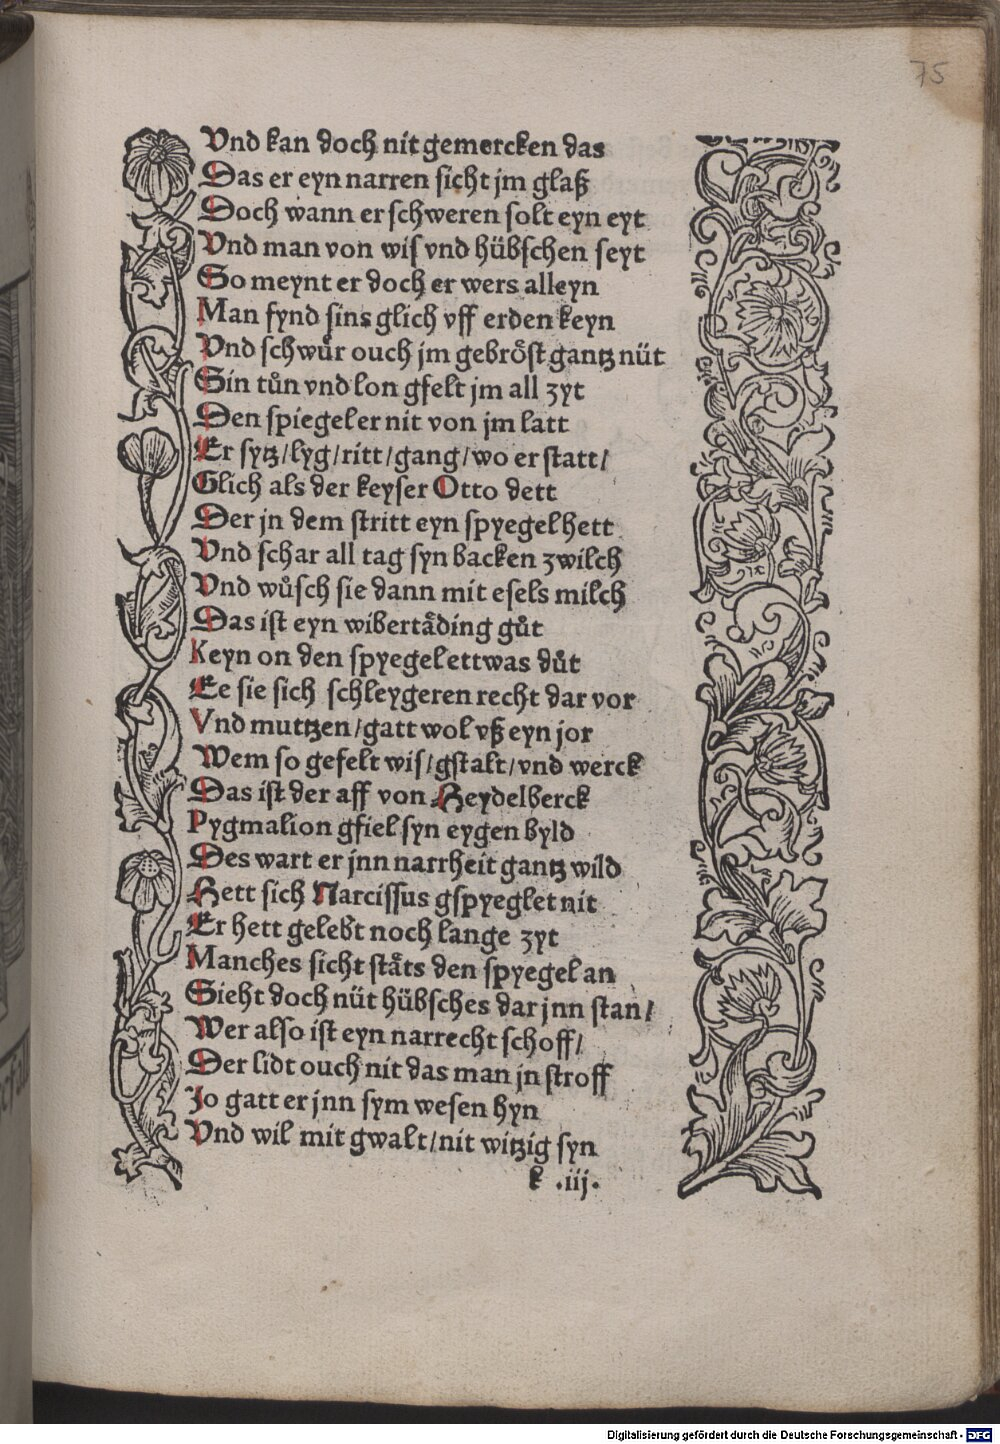 75
Vnd kan doch nit gemercken das
Das er eyn narren sicht jm glaß
Doch wann er schweren solt eyn eyt
Vnd man von wiſ vnd hübschen seyt
So meynt er doch er wers alleyn
Man fynd sins glich vff erden keyn
Vnd schwuͤr ouch jm gebroͤst gantz nüt
Sin tuͦn vnd lon gfelt jm all zyt
Den spiegel er nit von jm latt
Er sytz/lyg/ritt/gang/wo er statt/
Glich als der keyser Otto dett
Der jn dem stritt eyn spyegel hett
Vnd schar all tag syn backen zwilch
Vnd wuͦsch sie dann mit esels milch
Das ist eyn wibertaͤding guͦt
Keyn on den spyegel ettwas duͦt
Ee sie sich schleygeren recht dar vor
Vnd muttzen/gatt wol vß eyn jor
Wem so gefelt wiſ/gstalt/vnd werck
Das ist der aff von Heydelberck
Pygmalion gfiel syn eygen byld
Des wart er jnn narrheit gantz wild
Hett sich Narcissus gspyeglet nit
Er hett gelebt noch lange zyt
Manches sicht staͤts den spyegel an
Sieht doch nüt hübsches dar jnn stan/
Wer also ist eyn narrecht schoff/
Der lidt ouch nit das man jn stroff
Jo gatt er jnn sym wesen hyn
Vnd wil mit gwalt/nit witzig syn
k .iij.
Digitalisierung gefördert durch die Deutsche Forschungsgemeinschaft - DFG